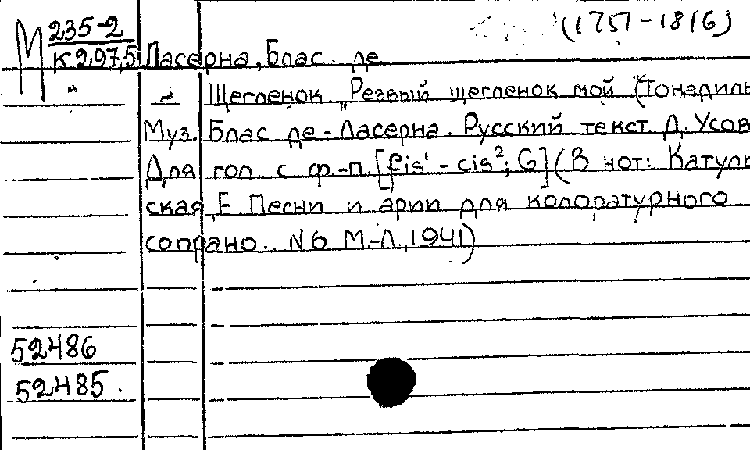 (1751-1816)
М 235-2
К 297,5 Ласерна, Блас де
" — Щегленок „Резвый щегленок мой (Тонадиль
Муз. Блас де-Ласерна. Русский текст Д. Усов
Для гол. с ф-п. [fis¹ - cis²; G] (В нот: Катуль
ская, Е. Песни и арии для колоратурного
сопрано. N6 М.-Л., 1941)
52486
52485.